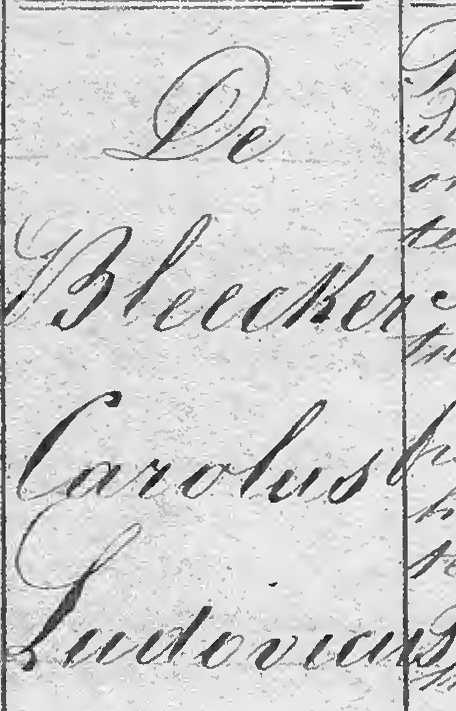 De
Bleecker
Carolus
Ludovicus